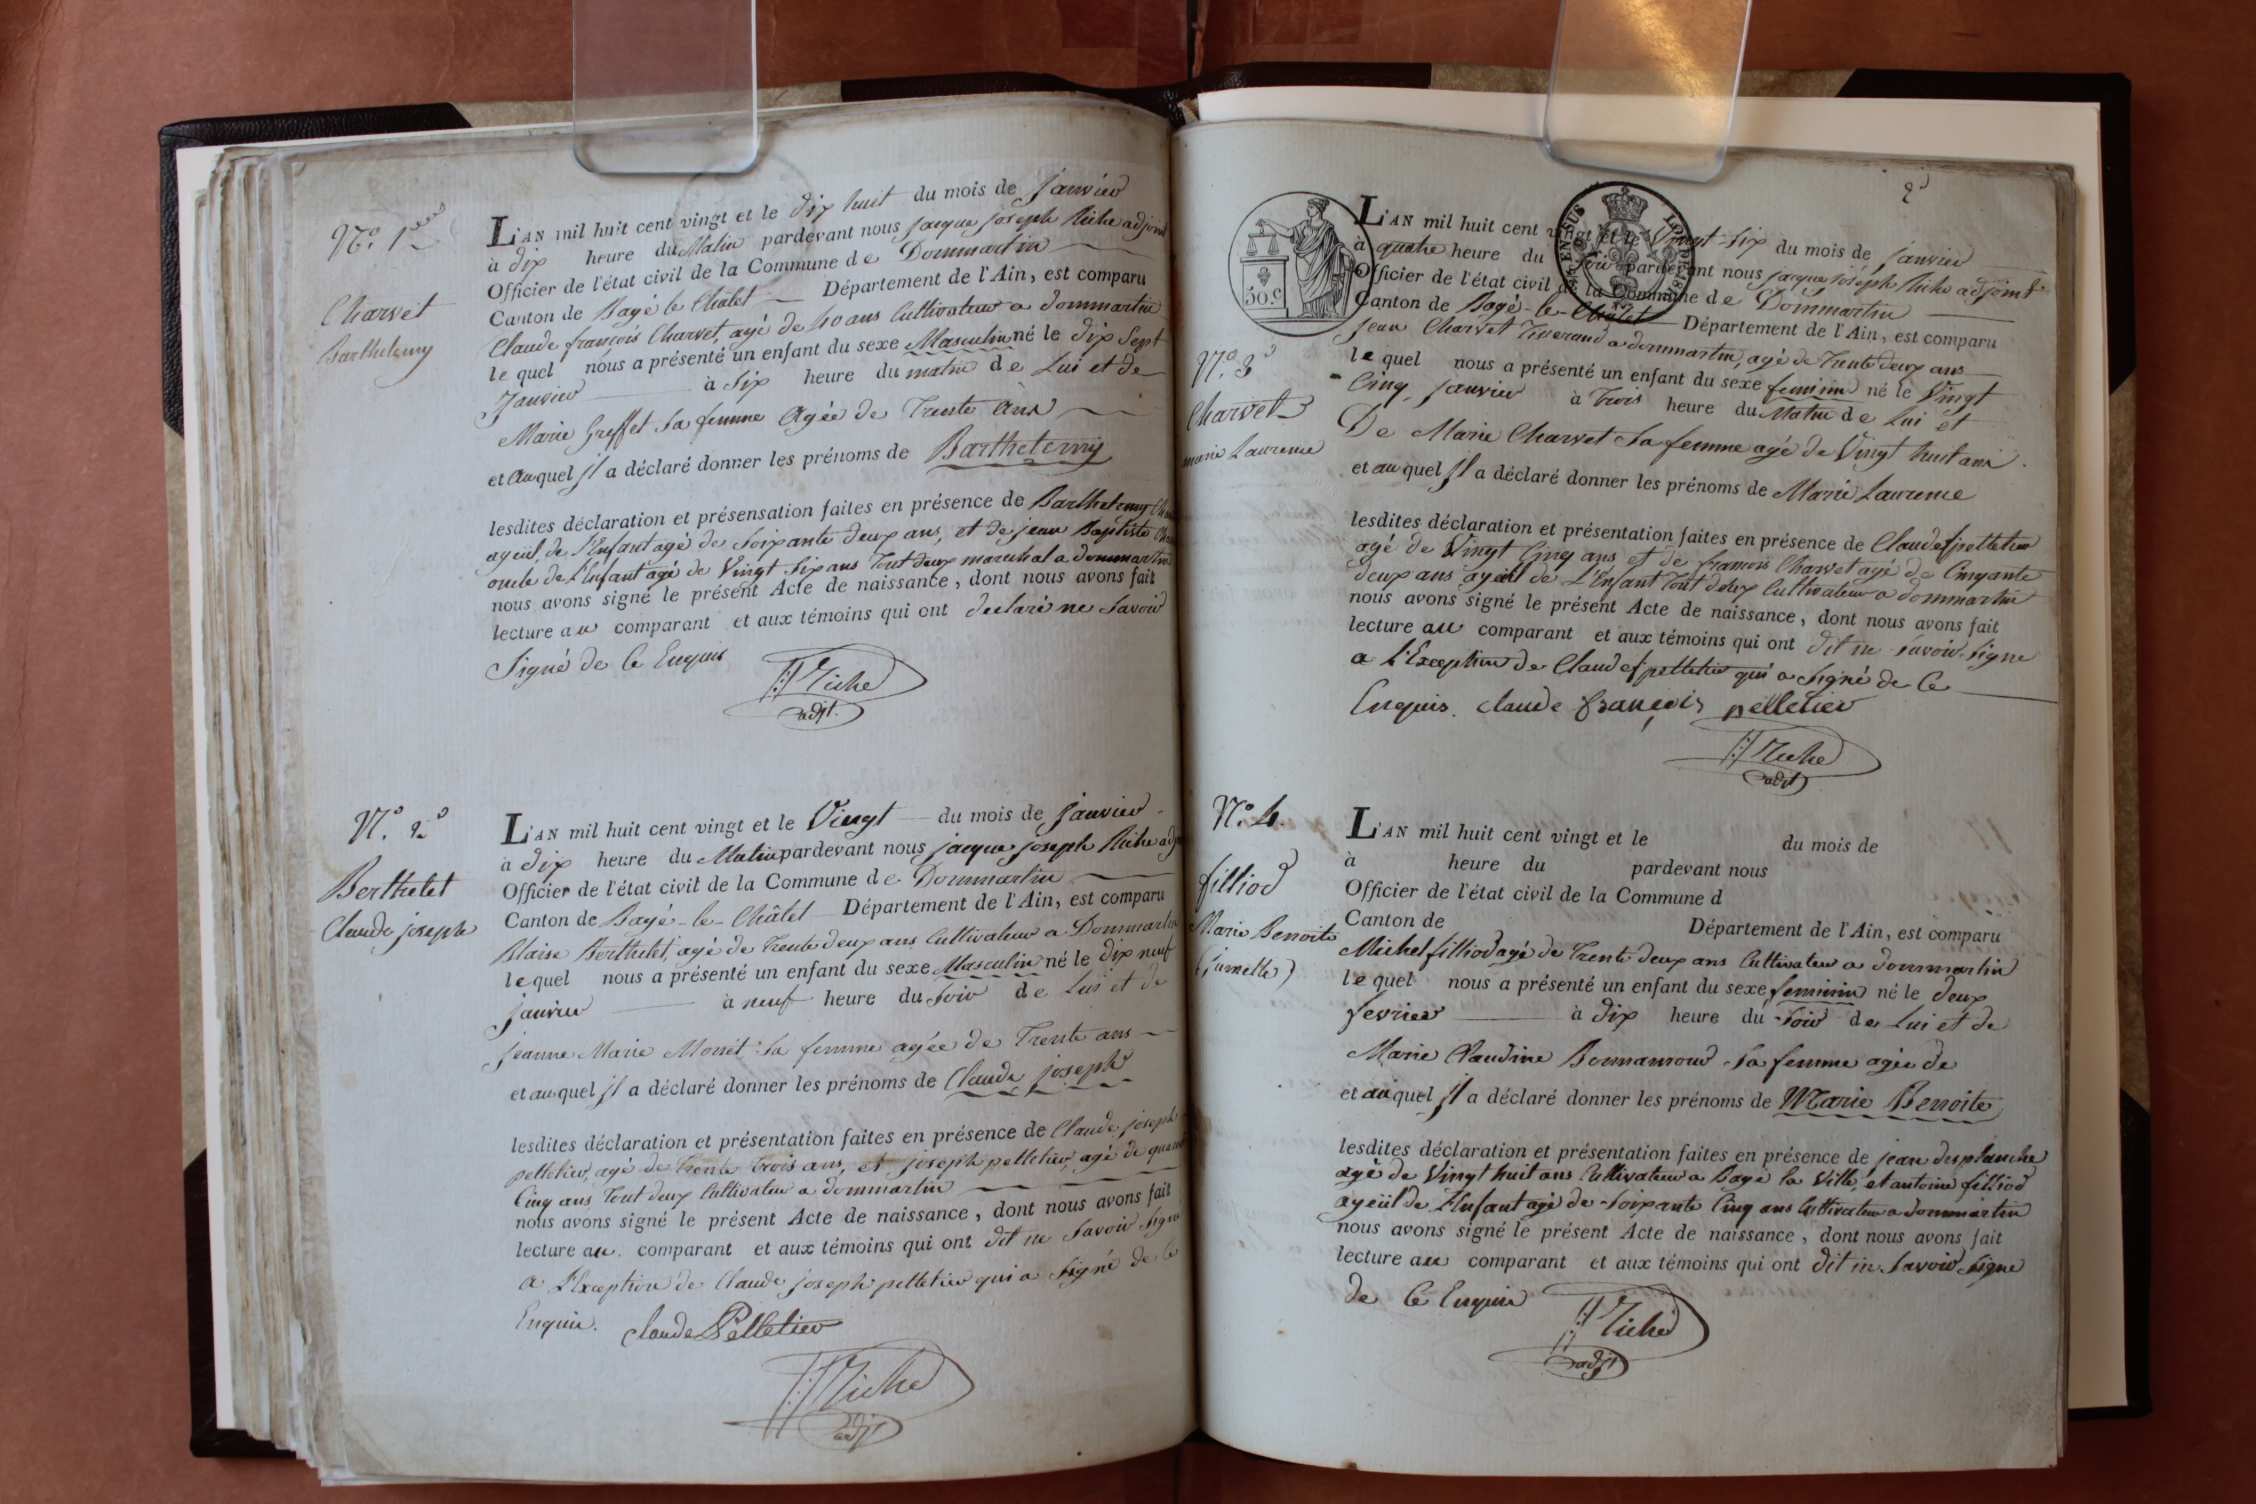 N.o 1er
Charvet
Barthelemy
L'AN mil huit cent vingt et le dix huit du mois de janvier
à dix heure du Matin pardevant nous jacque joseph Riche adjoint
Officier de l'état civil de la Commune de Dommartin
Canton de Bagé le Châlet Département de l'Ain, est comparu
Claude françois Charvet, agé de 40 ans Cultivateur a dommartin
le quel nous a présenté un enfant du sexe Masculin né le dix Sept
Janvier à Six heure du matin de Lui et de
Marie Greffet Sa femme Agée de Trente Ans
et Auquel jl a déclaré donner les prénoms de Barthelemy
lesdites déclaration et présensation faites en présence de Barthelemy
ayeül de l'Enfant agé de Soixante deux ans, et de jean Baptiste
oncle de l'Enfant agé de Vingt Six ans Tout deux marechal a dommartin
nous avons signé le présent Acte de naissance, dont nous avons fait
lecture au comparant et aux témoins qui ont declaré ne Savoir
Signé de Ce Enquis
Riche
adjt.
N.o 2
Berthelet
Claude joseph
L'AN mil huit cent vingt et le Vingt du mois de janvier
à dix heure du Matin pardevant nous jacque joseph Riche adj
Officier de l'état civil de la Commune de Dommartin
Canton de Bagé-le-Châtel Département de l'Ain, est comparu
Blaise Berthelet, agé de Trente deux ans Cultivateur a Dommartin
le quel nous a présenté un enfant du sexe Masculin né le dix neuf
janvier à neuf heure du Soir de Lui et de
jeanne Marie Sa femme agée de Trente ans
et auquel jl a déclaré donner les prénoms de Claude joseph
lesdites déclaration et présentation faites en présence de Claude joseph
pelletier, agé de Trente Trois ans, et joseph pelletier, agé de
Cinq ans Tout deux Cultivateur a dommartin
nous avons signé le présent Acte de naissance, dont nous avons fait
lecture au comparant et aux témoins qui ont dit ne Savoir Signé
a l'Exception de Claude joseph pelletier qui a Signé de Ce
Enquis. Claude Pelletier
Riche
adjt
2
50.c
LOI DE
N.o 3
Charvet
marie Laurence
L'AN mil huit cent vingt et le Vingt-Six du mois de janvier
à quatre heure du Soir pardevant nous jacque joseph Riche adjoint
Officier de l'état civil de la Commune de Dommartin
Canton de Bagé-le-Châlet Département de l'Ain, est comparu
jean Charvet Tisserand a dommartin, agé de Trente deux ans
le quel nous a présenté un enfant du sexe feminin né le Vingt
Cinq, janvier à Trois heure du Matin de Lui et
De Marie Charvet Sa femme agé de Vingt huit ans
et au quel jl a déclaré donner les prénoms de Marie Laurence
lesdites déclaration et présentation faites en présence de Claude f pelletier
agé de Vingt Cinq ans et de francois Charvet agé de Cinqante
deux ans ayeül de L'Enfant Tout deux Cultivateur a dommartin
nous avons signé le présent Acte de naissance, dont nous avons fait
lecture au comparant et aux témoins qui ont dit ne Savoir Signe
a l'Exception de Claude f pelletier qui a Signé de Ce
Enquis. claude françois pelletier
Riche
adjt
N.o 4.
filliod
Marie Benoite
(jumelle)
L'AN mil huit cent vingt et le du mois de
à heure du pardevant nous
Officier de l'état civil de la Commune d
Canton de Département de l'Ain, est comparu
Michel filliod agé de Trente deux ans Cultivateur a dommartin
le quel nous a présenté un enfant du sexe feminin né le deux
fevrier à dix heure du Soir de Lui et de
Marie Claudine Sa femme agée de
et auquel jl a déclaré donner les prénoms de Marie Benoite
lesdites déclaration et présentation faites en présence de jean desplanche
agé de Vingt huit ans Cultivateur a Bagé la Ville, et antoine filliod
ayeül de l'Enfant agé de Soixante Cinq ans Cultivateur a dommartin
nous avons signé le présent Acte de naissance, dont nous avons fait
lecture au comparant et aux témoins qui ont dit ne Savoir Signe
de Ce Enquis
Riche
adjt